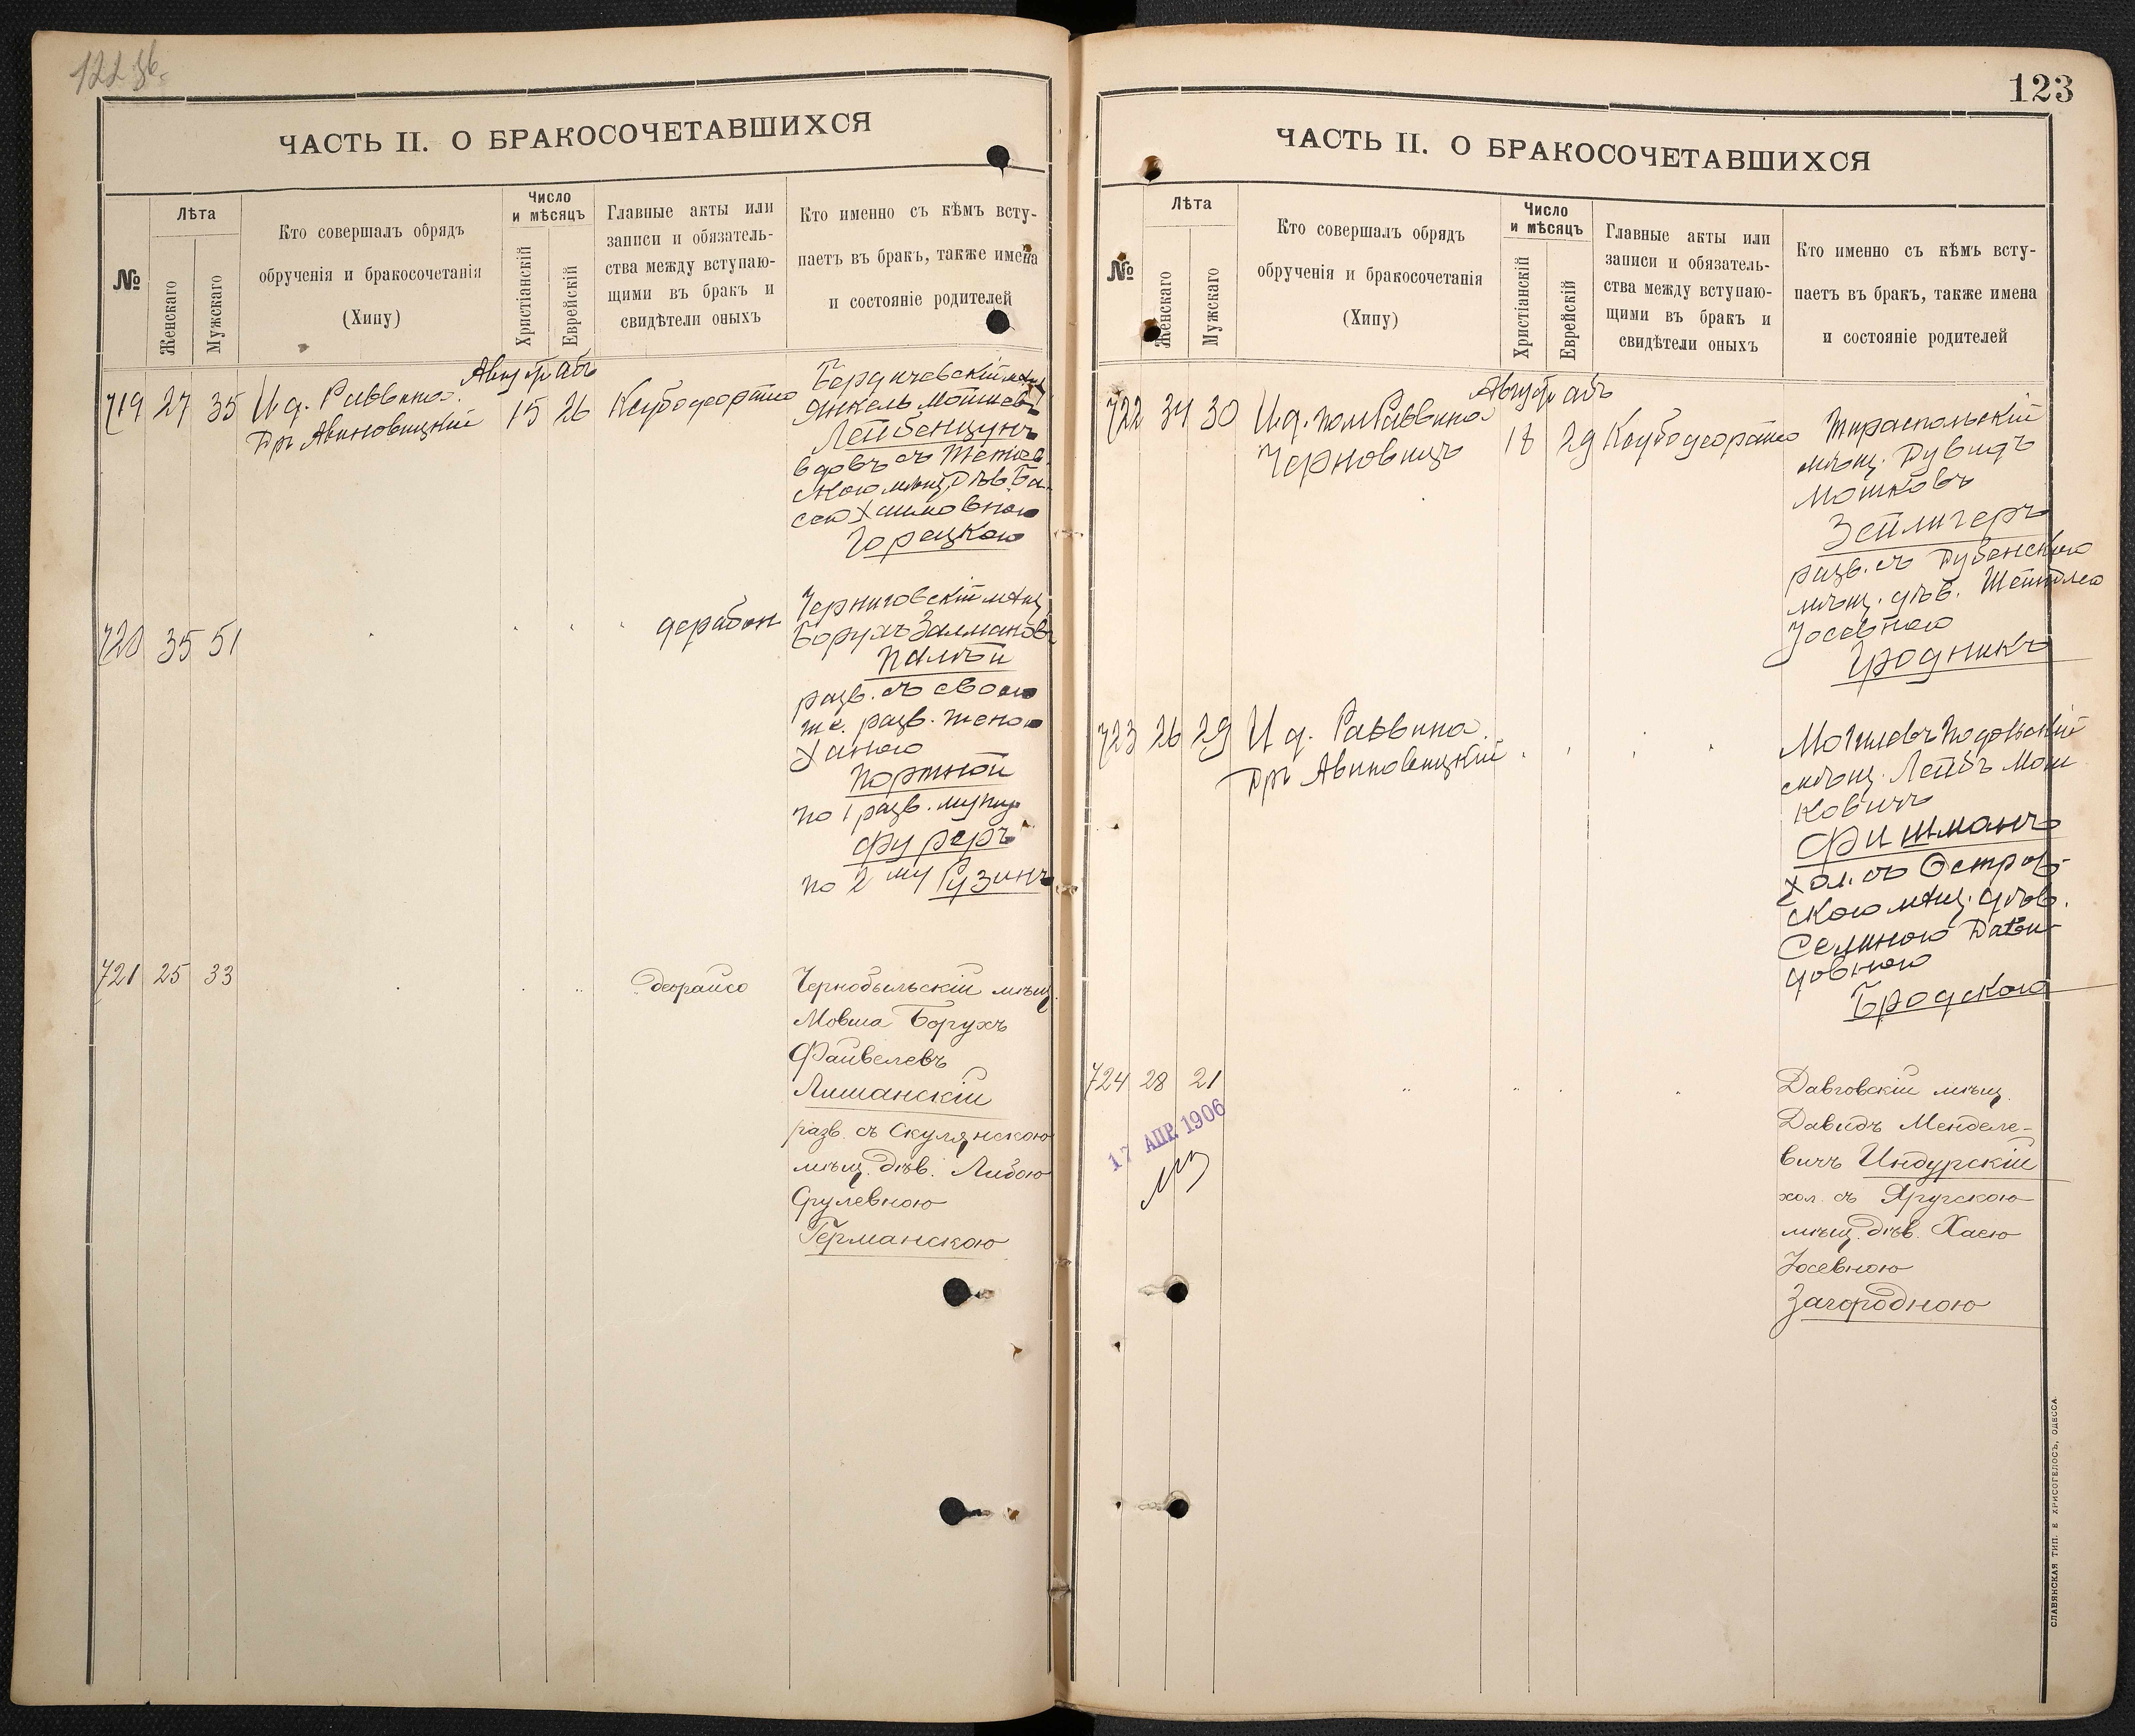 122 об.
ЧАСТЬ II. О БРАКОСОЧЕТАВШИХСЯ
№
Лѣта
Женскаго
Мужскаго
Кто совершалъ обрядъ
обрученія и бракосочетанія
(Хипу)
Число
и мѣсяцъ
Христіанскій
Еврейскій
Главные акты или
записи и обязатель-
ства между вступаю-
щими въ бракъ и
свидѣтели оныхъ
Кто именно съ кѣмъ всту-
паетъ въ бракъ, также имена
и состояніе родителей
Август абъ
719 27 35 И. д. Раввина
Др. Авиновицкій
15 26
Бердичевскій мѣщ.
Янкель
Лейбенцунъ
вдовъ съ
скою мѣщ. дѣв. Ба-
сею Хаимовною
Горецкою
720 35 51
Черниговскій мѣщ.
Борухъ Залмановъ
Палѣй
разв. съ своею
же разв. женою
Ханою
Портной
по 1 разв. мужу
Фуреръ
по 2 му Рузинъ
721 25 33
Чернобыльскій мѣщ.
Мовша Борухъ
Файвелевъ
Лишанскій
разв. съ Скулянскою
мѣщ. дѣв. Либою
Срулевною
Германскою
123
ЧАСТЬ II. О БРАКОСОЧЕТАВШИХСЯ
№
Лѣта
Женскаго
Мужскаго
Кто совершалъ обрядъ
обрученія и бракосочетанія
(Хипу)
Число
и мѣсяцъ
Христіанскій
Еврейскій
Главные акты или
записи и обязатель-
ства между вступаю-
щими въ бракъ и
свидѣтели оныхъ
Кто именно съ кѣмъ всту-
паетъ въ бракъ, также имена
и состояніе родителей
Август абъ
722 34 30 И. д. пом. Раввина
Черновицъ
18 29
Тираспольскій
мѣщ. Дувидъ
Мошковъ
Зейлигеръ
разв. съ Дубенскою
мѣщ. дѣв. Шейндлею
Іосевною
Гродникъ
723 26 29 И. д. Раввина
Др. Авиновицкій
Могилевъ Подольскій
мѣщ. Лейбъ Мош
ковичъ
Фишманъ
хол. съ Остров-
скою мѣщ. дѣв.
довною
Бродскою
724 28 21
17 АПР. 1906
Давговскій мѣщ.
Давидъ Менделе-
вичъ Индурскій
хол. съ Яругскою
мѣщ. дѣв. Хаею
Іосевною
Загородною
СЛАВЯНСКАЯ ТИП. Е ХРИСОГЕЛОСЪ, ОДЕССА.